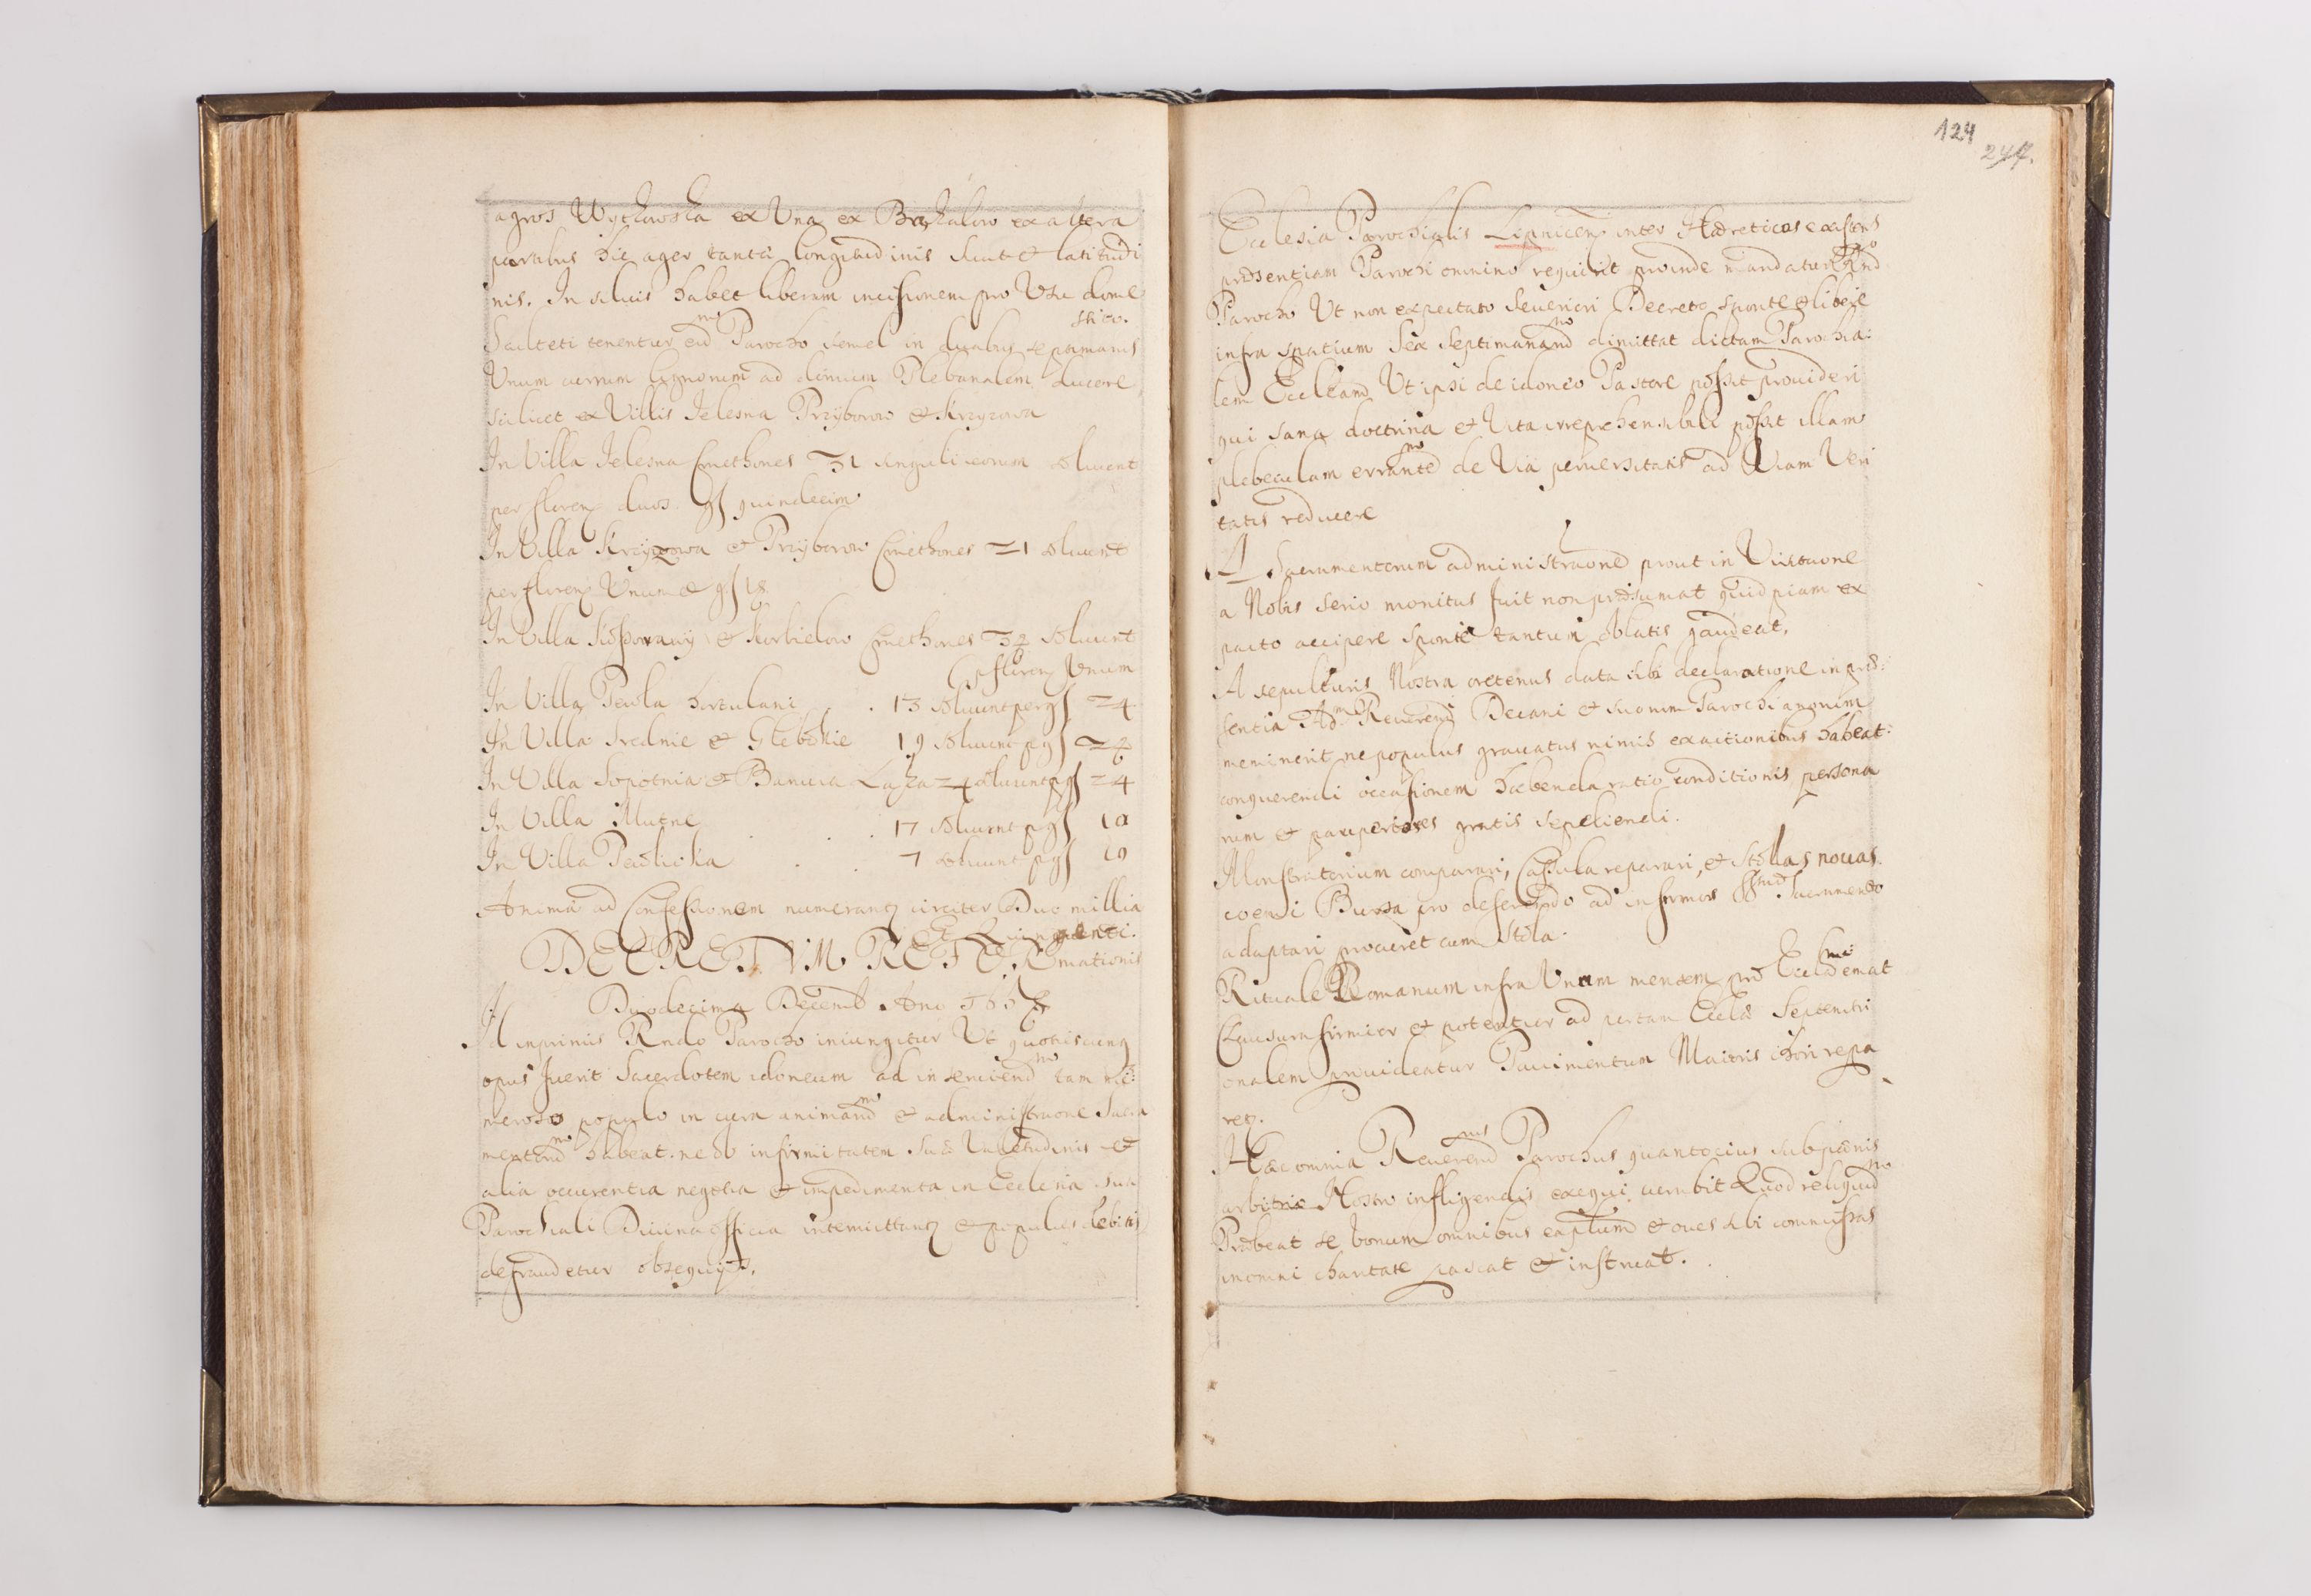 agros Wytkowska ex Una ex ex altera
partibus hic ager tantae longitudinis sicut et latitudi
nis. In siluis habet liberam incisionem pro Usu dome
stico.
Sculteti tenentur Parocho semel in duabus septimanis
Unum currum lignorum ad domum Plebanalem ducere
scilicet ex Villis Jelesna Przyborow et Krzyzowa
In Villa Jelesna Cmethones 31 singuli eorum soluent
per floren duos gs quindecim
In Villa Krzyzowa et Przyborow Cmethones 21 soluent
per floren Unum et gs 18
In Villa et Korbielow Cmethones 32 soluunt
p floren Unum
In Villa Pewla hortulani . 13 soluunt per gs 24
In Villa Srednie et Glebokie 19 soluunt p gs
In Villa Sopotnia et 24 soluunt p gs 24
In Villa Mutne . . 17 soluunt p gs 10
In Villa Pewlicka . . 7 soluunt p gs
Animae ad Confessionem numerant circiter Duo millia
et Quingenti.
DECRETVM REFORmationis
Duodecima Decemb Ano
Inprimis Rndo Parocho iniungitur Ut quotiscunq
opus fuerit Sacerdotem idoneum ad inseruiend tam nu:
meroso populo in cura animand et administraone Sacra
mentord habeat. ne ob infirmitatem suae Valetudinis et
alia occurentia negotia et impedimenta in Ecclesia sua
Parochiali Diuina officia intermittant et populus debitis
defraudetur obsequijs.
124
247.
Ecclesia Parochialis Lipnicen inter Haereticos existens
praesentiam Parochi omnino requirit proinde mandatur Rnd
Parocho Ut non expectato Seueriori Decreto sponte et libere
infra spatium Sex Septimanand dimittat dictam Parochia:
lem Eccleand Ut ipsi de idoneo Pastore possit prouideri
qui sana doctrina et Vita irreprehensibili possit illam
plebeculam errante de Via peruersitatis ad Viam Veri
tatis reducere
A Sacramentorum administraone prout in Visitaone
a Nobis serio monitus fuit non praesumat quidpiam ex
pacto accipere sponte tantum oblatis gaudeat.
A sepulturis Nostra oretenus data sibi declaratione in prae:
sentia Adm Reuerend Decani et suorum Parochianorum
meminerit ne populus grauatus nimis exactionibus habeat
conquerendi occasionem habenda ratio conditionis persona
rum et pauperiores gratis sepeliendi.
Monstratorium comparari, Casula reparari, et Stollas nouas
coemi Bursa pro deferendo ad infirmos Ssmo Sacramento
adaptari procuret cum Stola.
Rituale Romanum infra Unum mensem pro Eccla emat
Clausura firmior et potentior ad portam Eccle Septentri
onalem prouideatur Pauimentum Maioris Chori repa
ret.
Haec omnia Reuerend Parochus quantocius sub paenis
arbitrio Nostro infligendis exequi curabit Quod reliquum
Praebeat se bonum omnibus exeplum et oues sibi commissas
in omni charitate pascat et instruat.